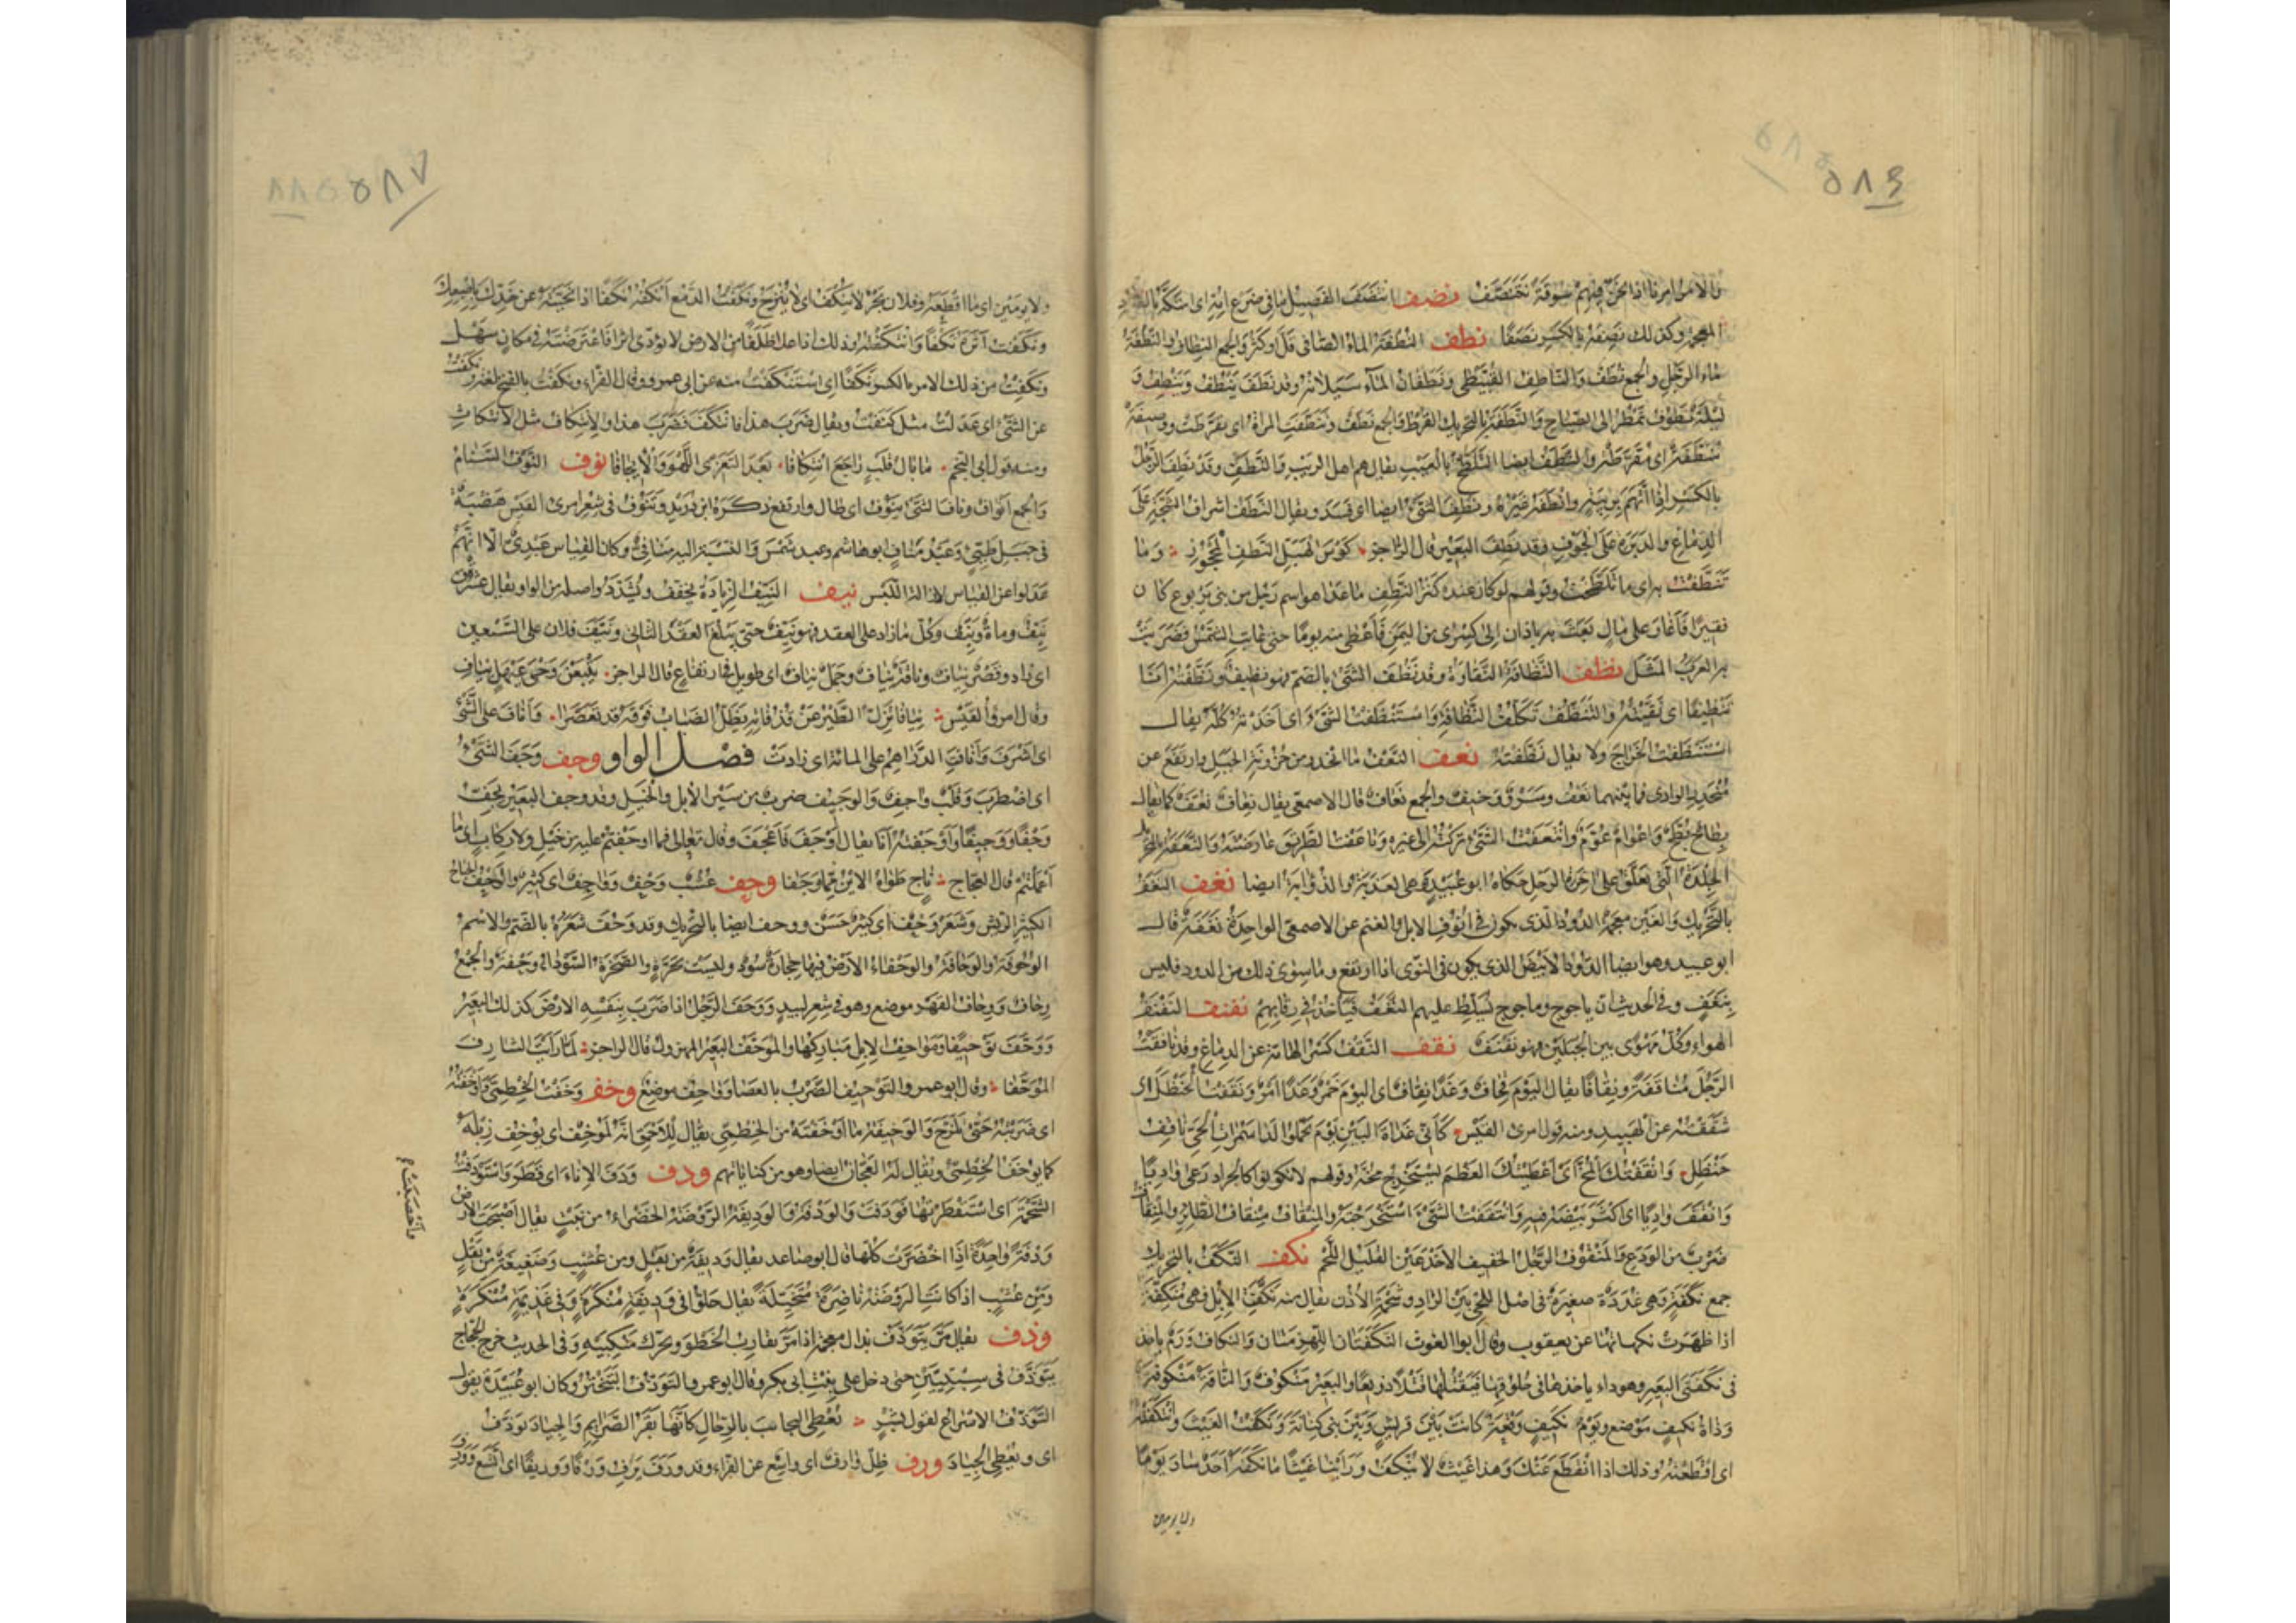 والامر امرنا اذا نحن فيهم سوقة نتنصف نضف انتضف الفصيل ما في ضرع امه اى امتكه بالضاد
المعجمة وكذلك نضفه بالكسر نضفا نطف النطفة الماء الصافى قل او كثر والجمع النطاف والنطفة
ماء الرجل والجمع نطف والناطف القبيطى ونطفان الماء سيلانه وقد نطف ينطف وينطف و
ليلة نطوف تمطر الى الصباح والنطفة بالتحريك القرط والجمع نطف وتنطفت المراة اى تقرطت ووصيفة
منطفة اى مقرطة والنطف ايضا التلطخ بالعيب يقال هم اهل الريب والنطف وقد نطف الرجل
بالكسر اذا اتهم بريبة وانطفه غيره ونطف الشئ ايضا اى فسد ويقال النطف اشراف الشجة على
الدماغ والدبرة على الجوف وقد نطف البعير قال الراجز كوس الهبل النطف المحجوز وما
تنطفت به اى ما تلطخت وقولهم لو كان عنده كنز النطف ما عدا هو اسم رجل من بنى يربوع كان
فقيرا فاغار على مال بعث به باذان الى كسرى من اليمن فاعطى منه يوما حتى غابت الشمس فضربت
به العرب المثل نظف النظافة النقاوة وقد نظف الشئ بالضم فهو نظيف ونظفته انا
تنظيفا اى نقيته والتنظف تكلف النظافة واستنظفت الشئ اى اخذته كله يقال
استنظفت الخراج ولا يقال نظفته نعف النعف ما انحدر من حزونة الجبل وارتفع عن
منحدر الوادى فما بينهما نعف وسرو وخيف والجمع نعاف قال الاصمعى يقال نعاف نعف كما يقال
بطاح بطح واعوام عوم وانتعفت الشئ تركته الى غيره وناعفت الطريق عارضته والنعفة بالتحريك
الجلدة التى تعلق على اخرة الرحل حكاه ابو عبيد وهى العذبة والذؤابة ايضا نغف النغف
بالتحريك والغين معجمة الدود الذى يكون فى انوف الابل والغنم عن الاصمعى الواحدة نغفة قال
ابو عبيد وهو ايضا الدود الابيض الذى يكون فى النوى اذا ارتفع وما سوى ذلك من الدود فليس
بنغف وفى الحديث ان ياجوج وماجوج يسلط عليهم النغف فياخذ فى رقابهم نفنف النفنف
الهواء وكل مهوى بين الجبلين فهو نفنف نقف النقف كسر الهامة عن الدماغ وقد ناقفت
الرجل مناقفة ونقافا يقال اليوم قحاف وغدا نقاف اى اليوم خمر وغدا امر ونقفت الحنظل اى
شققته عن الهبيد ومنه قول امرئ القيس كانى غداة البين يوم تحملوا لدى سمرات الحى ناقف
حنظل وانقفتك المخ اى اعطيتك العظم ليستخرج مخه وقولهم لا تكونوا كالجراد رعى واديا
وانقف واديا اى اكثر بيضه فيه وانتقفت الشئ استخرجته والمنقاف منقاف الطائر والمنقاف
ضرب من الودع والمنقوف الرجل الخفيف الاخدعين القليل اللحم نكف النكف بالتحريك
جمع نكفة وهى غددة صغيرة فى اصل اللحى بين الرأد وشحمة الاذن يقال منه نكفت الابل فهى منكفة
اذا ظهرت نكفاتها عن يعقوب وقال ابو الغوث النكفتان اللهزمتان والنكاف ورم ياخذ
فى نكفتى البعير وهو داء ياخذها فى حلوقها فيقتلها قتلا ذريعا والبعير منكوف والناقة منكوفة
وذات نكيف موضع ويوم نكيف وقعة كانت بين قريش وبين بنى كنانة ونكفت الغيث وانتكفته
اى اقطعته وذلك اذا انقطع عنك وهذا غيث لا ينكف وراينا غيثا ما نكفه احد سار يوما
ولا يومين
ولا يومين اى ما اقطعه وفلان بحر لا ينكف اى لا ينزح ونكفت الدمع انكفه نكفا اذا نحيته عن خدك باصبعك
ونكفت اثره نكفا وانتكفته وذلك اذا علا ظلفا من الارض لا يؤدى اثرا فاعترضته فى مكان سهل
ونكفت من ذلك الامر بالكسر نكفا اى استنكفت منه عن ابى عمرو وقال الفراء ونكفت بالفتح لغة ونكفت
عن الشئ اى عدلت مثل كنفت ويقال ضرب هذا فانتكف فضرب هذا والانتكاف مثل الانتكاث
ومنه قول ابى النجم ما بال قلب راجع انتكافا بعد التعزى اللهو والايجافا نوف النوف السنام
والجمع انواف وناف الشئ ينوف اى طال وارتفع ذكره ابن دريد وتنوف فى شعر امرئ القيس هضبة
فى جبل طيئ وعبد مناف ابو هاشم وعبد شمس والنسبة اليه منافى وكان القياس عبدى الا انهم
عدلوا عن القياس لازالة اللبس نيف النيف الزيادة يخفف ويشدد واصله من الواو يقال عشرة و
نيف ومائة ونيف وكل ما زاد على العقد فهو نيف حتى يبلغ العقد الثانى ونيف فلان على السبعين
اى زاد وقصر نياف وناقة نياف وجمل نياف اى طويل فى ارتفاع قال الراجز يتبعن وحى عيهل نياف
وقال امرؤ القيس نيافا تزل الطير عن قذفاته يظل الضباب فوقه قد تعصرا واناف على الشئ
اى اشرف وانافت الدراهم على المائة اى زادت فصل الواو وجف وجف الشئ
اى اضطرب وقلب واجف والوجيف ضرب من سير الابل والخيل وقد وجف البعير يجف
وجفا ووجيفا واوجفته انا يقال اوجف فاعجف وقال تعالى فما اوجفتم عليه من خيل ولا ركاب اى ما
اعملتم قال العجاج ناج طواه الاين مما وجفا وحف عشب وحف وواحف اى كثير والوحف الجناح
الكثير الريش وشعر وحف اى كثير حسن ووحف ايضا بالتحريك وقد وحف شعره بالضم والاسم
الوحوفة والوحافة والوحفاء الارض فيها حجارة سود وليست بحرة والصخرة السوداء وحفة والجمع
وحاف ووحاف القهر موضع وهو فى شعر لبيد ووحف الرجل اذا ضرب بنفسه الارض كذلك البعير
ووحف توحيفا ومواحف الابل مباركها والموحف البعير المهزول قال الراجز لما رايت الشارف
الموحفا وقال ابو عمرو التوحيف الضرب بالعصا وواحف موضع وخف وخفت الخطمى واوخفته
اى ضربته حتى تلزج والوخيفة ما اوخفته من الخطمى يقال للاحمق انه لموخف اى يوخف زبله
كما يوخف الخطمى ويقال له العجان ايضا وهو من كناياتهم ودف ودف الاناء اى قطر واستودفت
الشحمة اى استقطرتها فودفت والودفة والوديفة الروضة الخضراء من نبت يقال اصبحت الارض
ودفة واحدة اذا اخضرت كلها قال ابو صاعد يقال وديفة من بقل ومن عشب وضغيغة من بقل
ومن عشب اذا كانت الروضة ناضرة متخيلة يقال حلوا فى وديفة منكرة وفى غذيمة منكرة
وذف يقال مر يتوذف بذال معجمة اذا مر يقارب الخطو ويحرك منكبيه وفى الحديث خرج الحجاج
يتوذف فى سبتيتين حتى دخل على بنت ابى بكر وقال ابو عمرو التوذف التبختر وكان ابو عبيدة يقول
التوذف الاسراع لقول بشر يعطى النجائب بالرحال كانها بقر الصرائم والجياد توذف
اى ويعطى الجياد ورف ظل وارف اى واسع عن الفراء وقد ورف يرف ورفا ووريفا اى اتسع وورف
٥٨٧